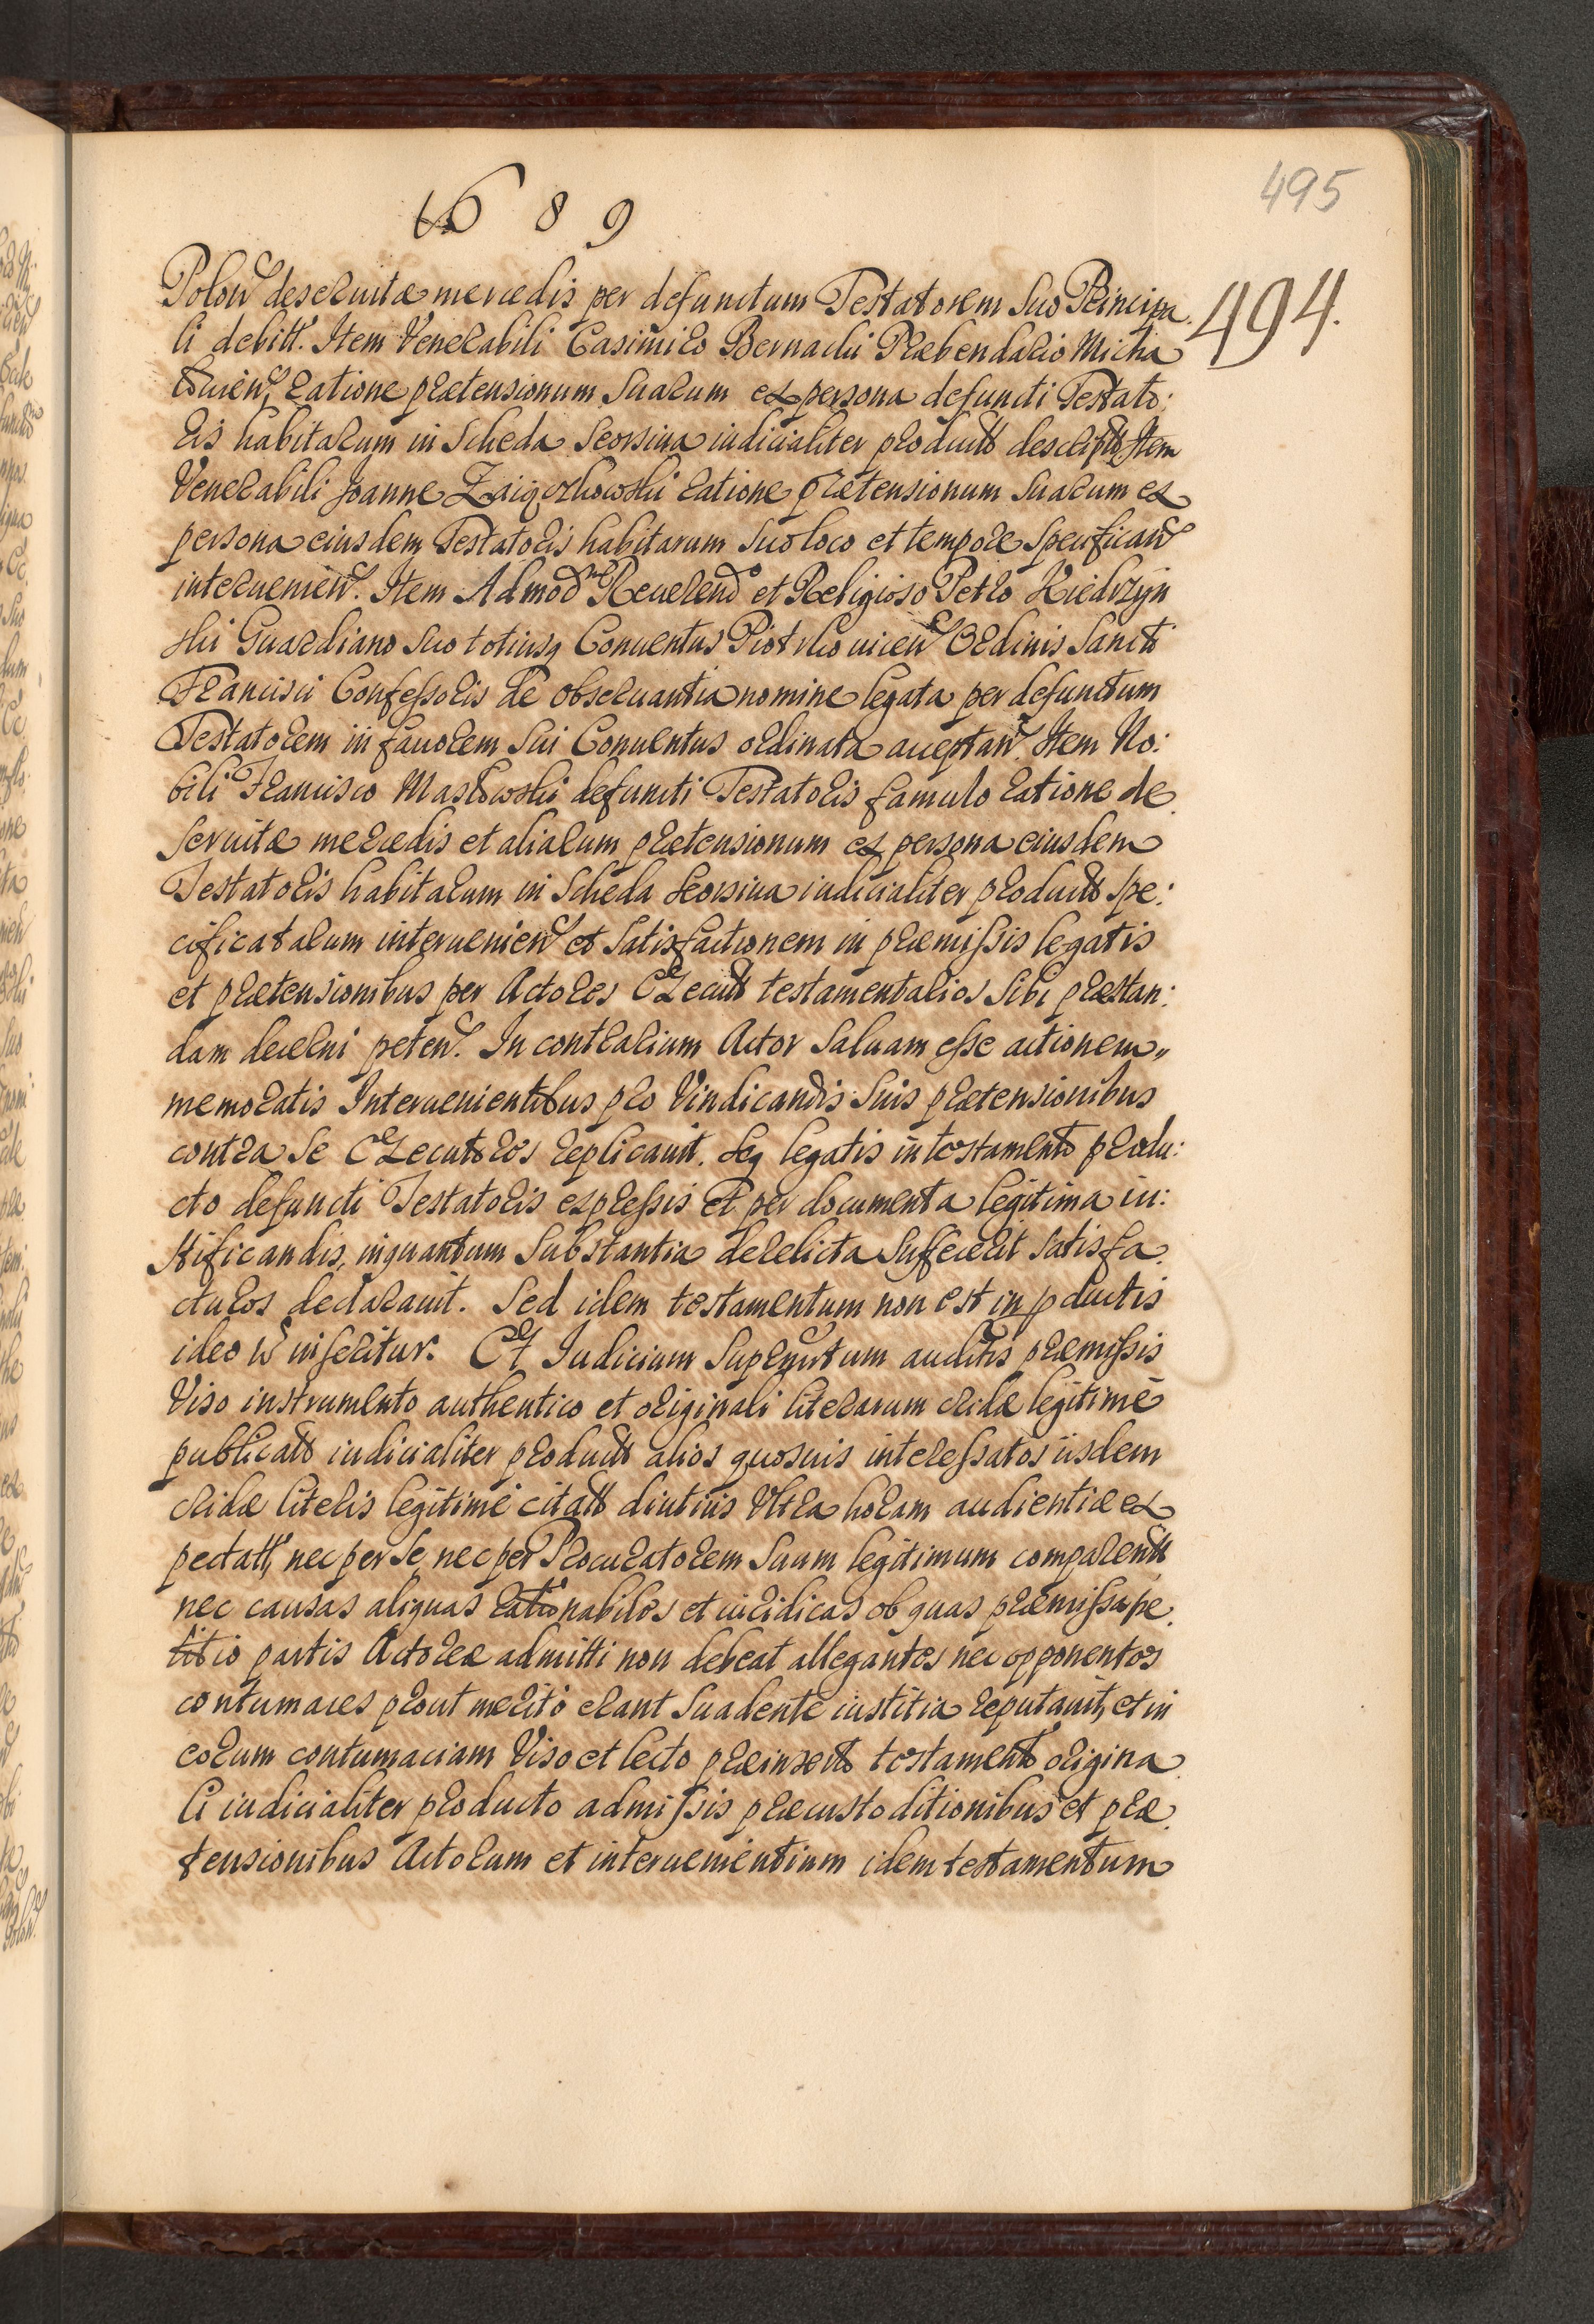 495
1689
494.
Polon deseruitæ mercedis per defunctum Testatorem suo Principa
li debitt. Item Venerabili Casimiro Bernacki Præbendario Micha
louien, ratione prætensionum suarum ex persona defuncti Testato:
ris habitarum in scheda seorsiua iudicialiter product descript Item
Venerabili Joanne ratione prætensionum suarum ex
persona eiusdem Testatoris habitarum suo loco et tempore specifican
interuenien. Item Admod Reuerend et Religioso Petro Kiedrzyn
ski Guardiano suo totiusq Conuentus Piotrkouien Ordinis Sancti
Francisci Confessoris de obseruantia nomine legata per defunctum
Testatorem in fauorem sui Conuentus ordinata acceptan. Item No:
bili Francisco Masłowski defuncti Testatoris famulo ratione de
seruitæ mercedis et aliarum prætensionum ex persona eiusdem
Testatoris habitarum in scheda seorsiua iudicialiter product spe:
cificatarum interuenien et satisfactionem in præmissis legatis
et prætensionibus per Actores Execut testamentarios sibi præstan:
dam decerni peten. In contrarium Actor saluam esse actionem,,
memoratis Interuenientibus pro Vindicandis suis prætensionibus
contra se Executores replicauit. Seq legatis in testamento produ:
cto defuncti Testatoris expressis et per documenta legitima iu:
stificandis, inquantum substantia derelicta suffecerit satisfa
cturos declarauit. Sed idem testamentum non est in pductis
ideo n inseritur. Et Iudicium auditis præmissis
Viso instrumento authentico et originali literarum cridæ legitime
publicatt iudicialiter product alios quosuis interessatos iisdem
cridæ literis legitime citatt diutius Vltra horam audientiæ ex
pectatt, nec per se, nec per Procuratorem suum legitimum comparentt
nec causas aliquas rationabiles et iuridicas ob quas præmissa pe
titio partis Actoreæ admitti non debeat allegantes nec opponentes
contumaces prout merito erant suadente iustitia reputauit, et in
eorum contumaciam Viso et lecto præinserto testamento origina
li iudicialiter producto admissis præcustoditionibus et præ
tensionibus Actorum et interuenientium idem testamentum